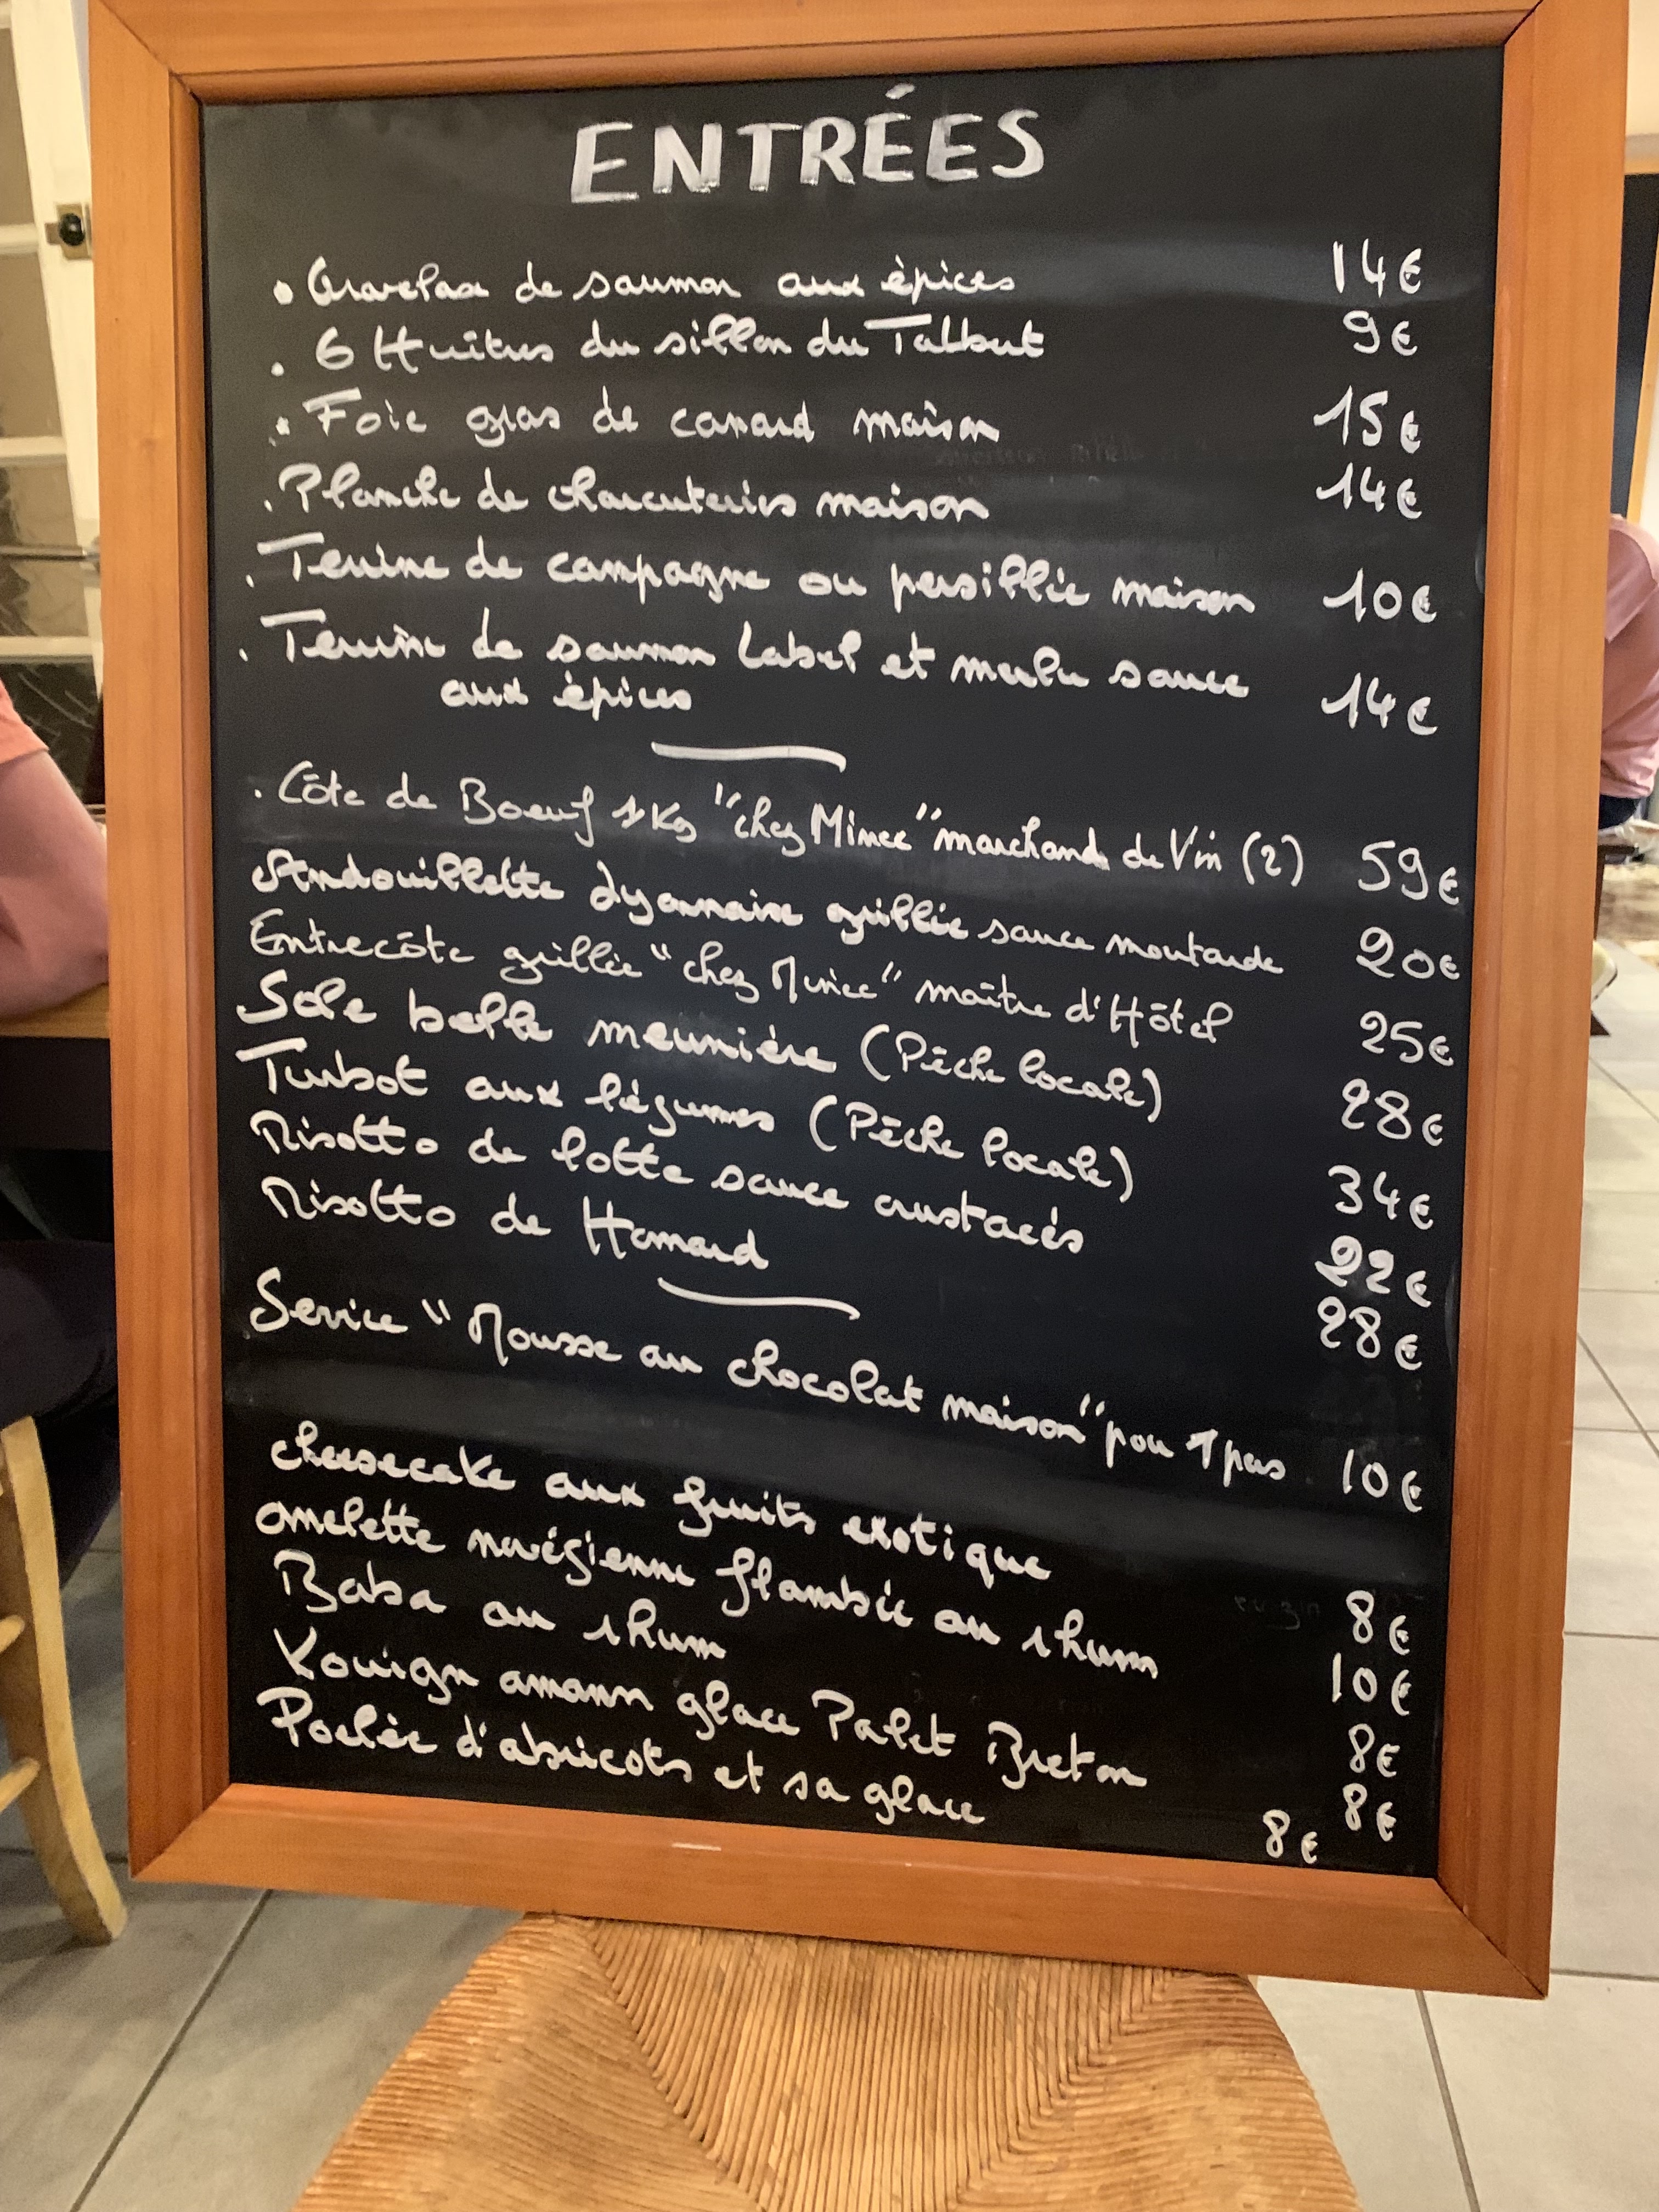 ENTRÉES
• Gravelax de saumon aux épices 14€
. 6 Huîtres du sillon du Talbert 9€
. Foie gras de canard maison 15€
. Planche de charcuteries maison 14€
. Terrine de campagne ou persillée maison 10€
. Terrine de saumon Label et merlu sauce
aux épices 14€
. Côte de Boeuf 1Kg "chez" marchand de Vin (2) 59€
Andouillette Lyonnaise grillée sauce moutarde 20€
Entrecôte grillée "chez" maître d'Hôtel 25€
Sole belle meunière (Pêche locale) 28€
Turbot aux légumes (Pêche locale) 34€
Risotto de lotte sauce crustacés 22€
Risotto de Homard 28€
Service "Mousse au chocolat maison" pour 1 pers 10€
cheesecake aux fruits exotique 8€
omelette norvégienne flambée au rhum 10€
Baba au rhum 8€
Kouign amann glace Palet Breton 8€
Poêlée d'abricots et sa glace 8€